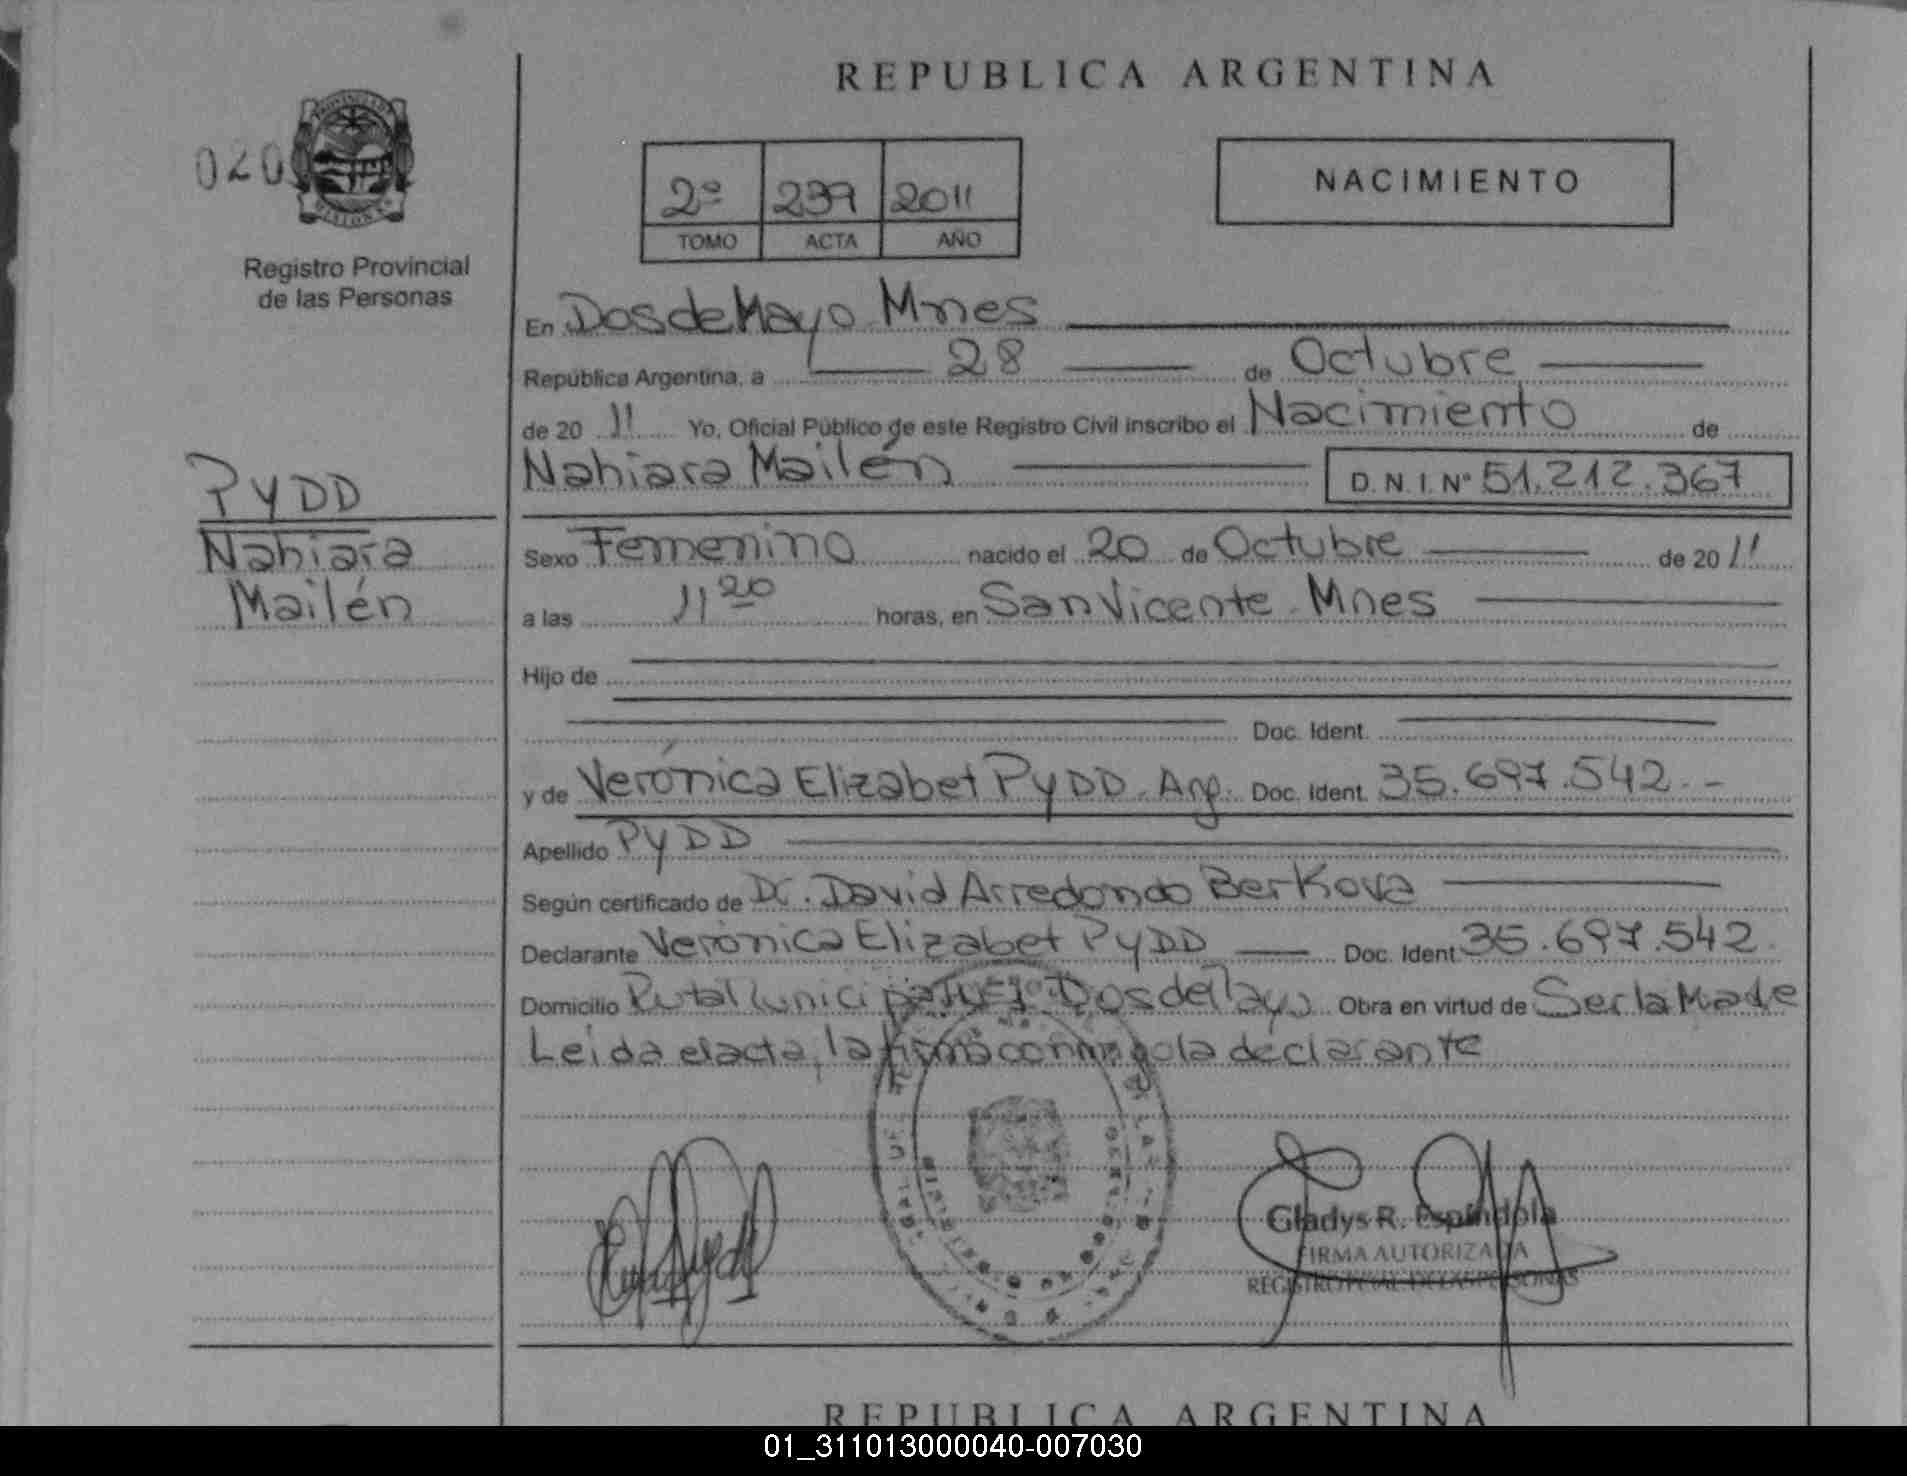 REPUBLICA ARGENTINA
020
PROVINCIA DE MISIONES
Registro Provincial
de las Personas
2º 239 2011
TOMO ACTA AÑO
NACIMIENTO
En Dos de Mayo Mnes
República Argentina, a 28 de Octubre
de 20 11 Yo, Oficial Público de este Registro Civil inscribo el Nacimiento de
Nahiara Mailén D.N.I.Nº 51.212.367
PYDD
Nahiara
Mailén
Sexo Femenino nacido el 20 de Octubre de 20 11
a las 11 20 horas, en San Vicente Mnes
Hijo de
Doc. Ident.
y de Verónica Elizabet PYDD. Arg. Doc. Ident. 35.697.542.-
Apellido PYDD
Según certificado de Dr. David Arredondo Berkova
Declarante Verónica Elizabet PYDD Doc. Ident 35.697.542
Domicilio Dos de Mayo Obra en virtud de Ser la Madre
Leida el acta, la firma conmigo la declarante
Gladys R. Espíndola
FIRMA AUTORIZADA
REGISTRO PCIAL. DE LAS PERSONAS
REPUBLICA ARGENTINA
01_311013000040-007030